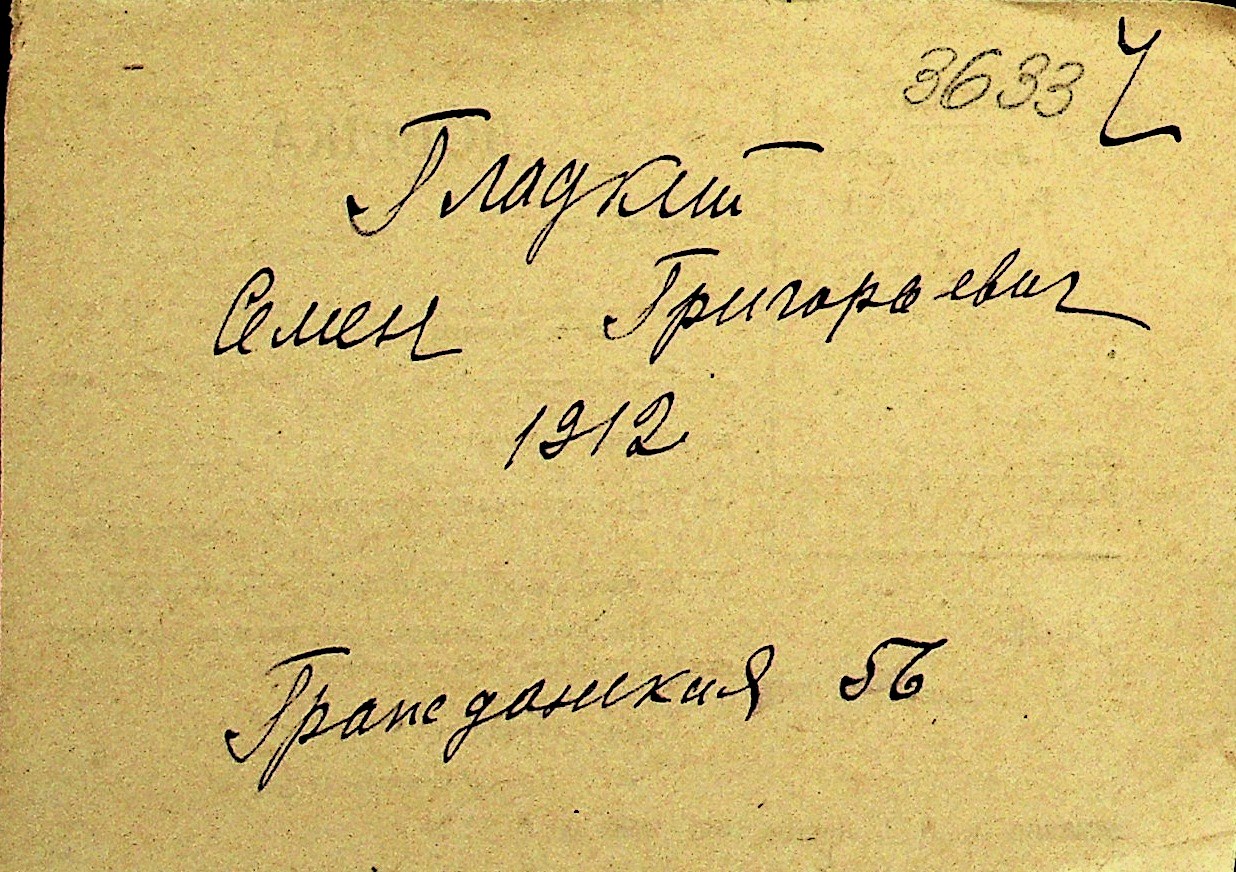 3633 Ч
Гладкий
Семен Григорьевич
1912
Гражданская 56